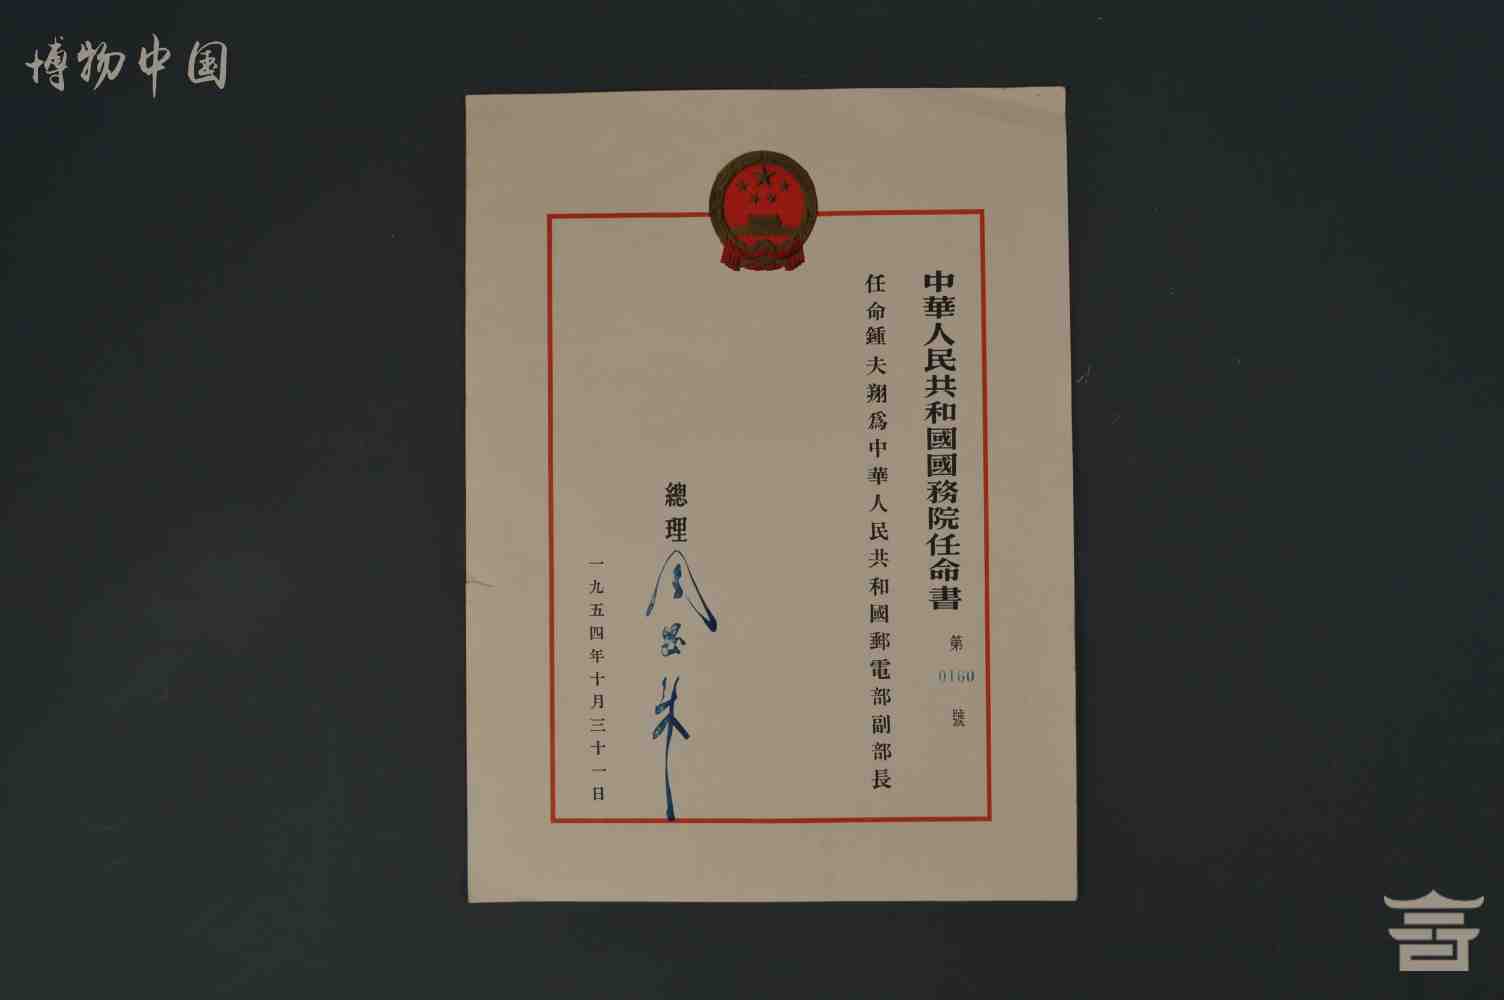 博物中国
中華人民共和國國務院任命書
第
0160
號
任命鍾夫翔爲中華人民共和國郵電部副部長
總理 周恩来
一九五四年十月三十一日